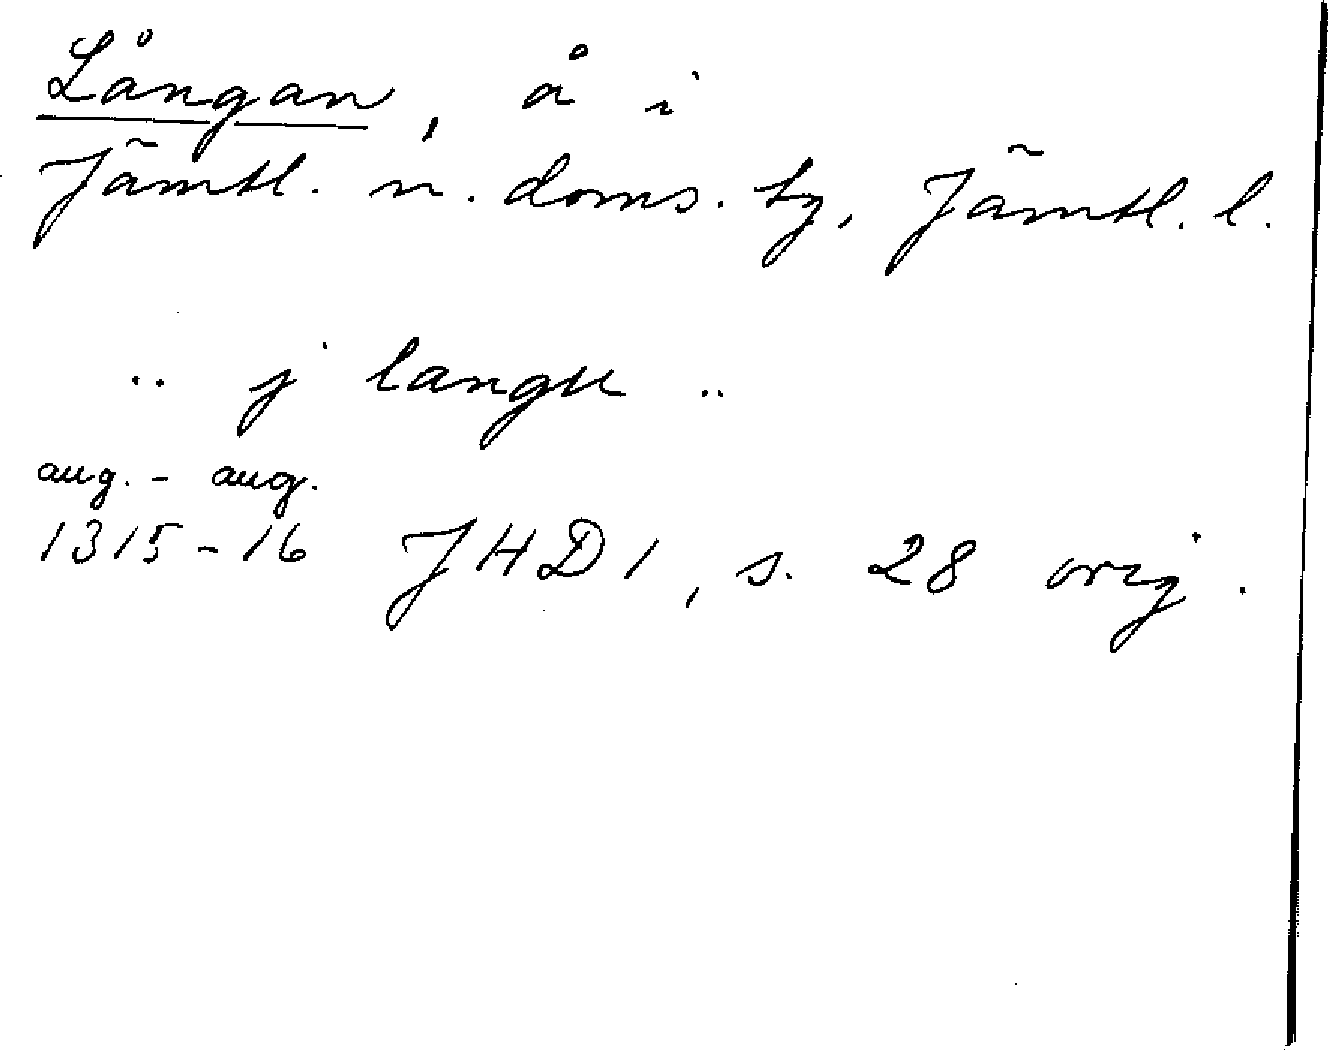 Långan, å i
Jämtl. n. doms. tg, Jämtl. l.
.. j langu ..
aug. - aug.
1315-16 JHD 1, s. 28 orig.